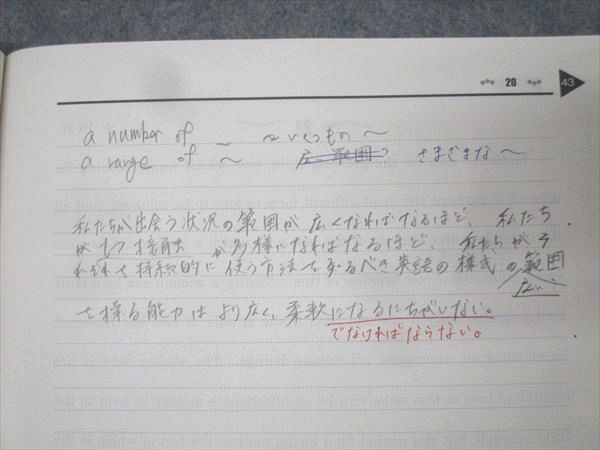 20
43
a number of ～ ～いくつもの～
a range of ～ 広い範囲の さまざまな～
私たちが出会う状況の範囲が広くなればなるほど、私たち
がもつ が多様になればなるほど、私たちがそ
れぞれを持続的に使う方法を知るべき英語の様式の範囲
広い
を操る能力はより広く、柔軟になるにちがいない。
でなければならない。